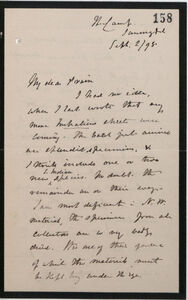 158
The Camp.
Sept. 2/98.
My dear Prain
I had no idea,
when I last wrote that any
more Impatiens sheets were
coming. The last just arrived
are splendid specimens, &
I think include one or two
new Indian species. No doubt the
remainder are on their way.
I am most deficient in N.W.
material, the specimens from all
collectors are so very badly
dried. It is one of those genera
of which the material must
be kept long under the eye